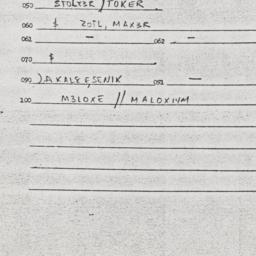 050 STOLT3R / TOKER
060 $ ZOTL, MAX3R
061 — 062 —
070 $
090 ) AKALE E, SENIK 091 —
100 M3LOXE // MALOXIVM